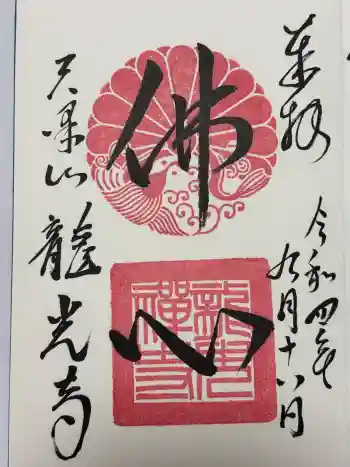 奉拝
令和四年
九月十八日
佛
心
龍光禅寺
天澤山
龍光寺